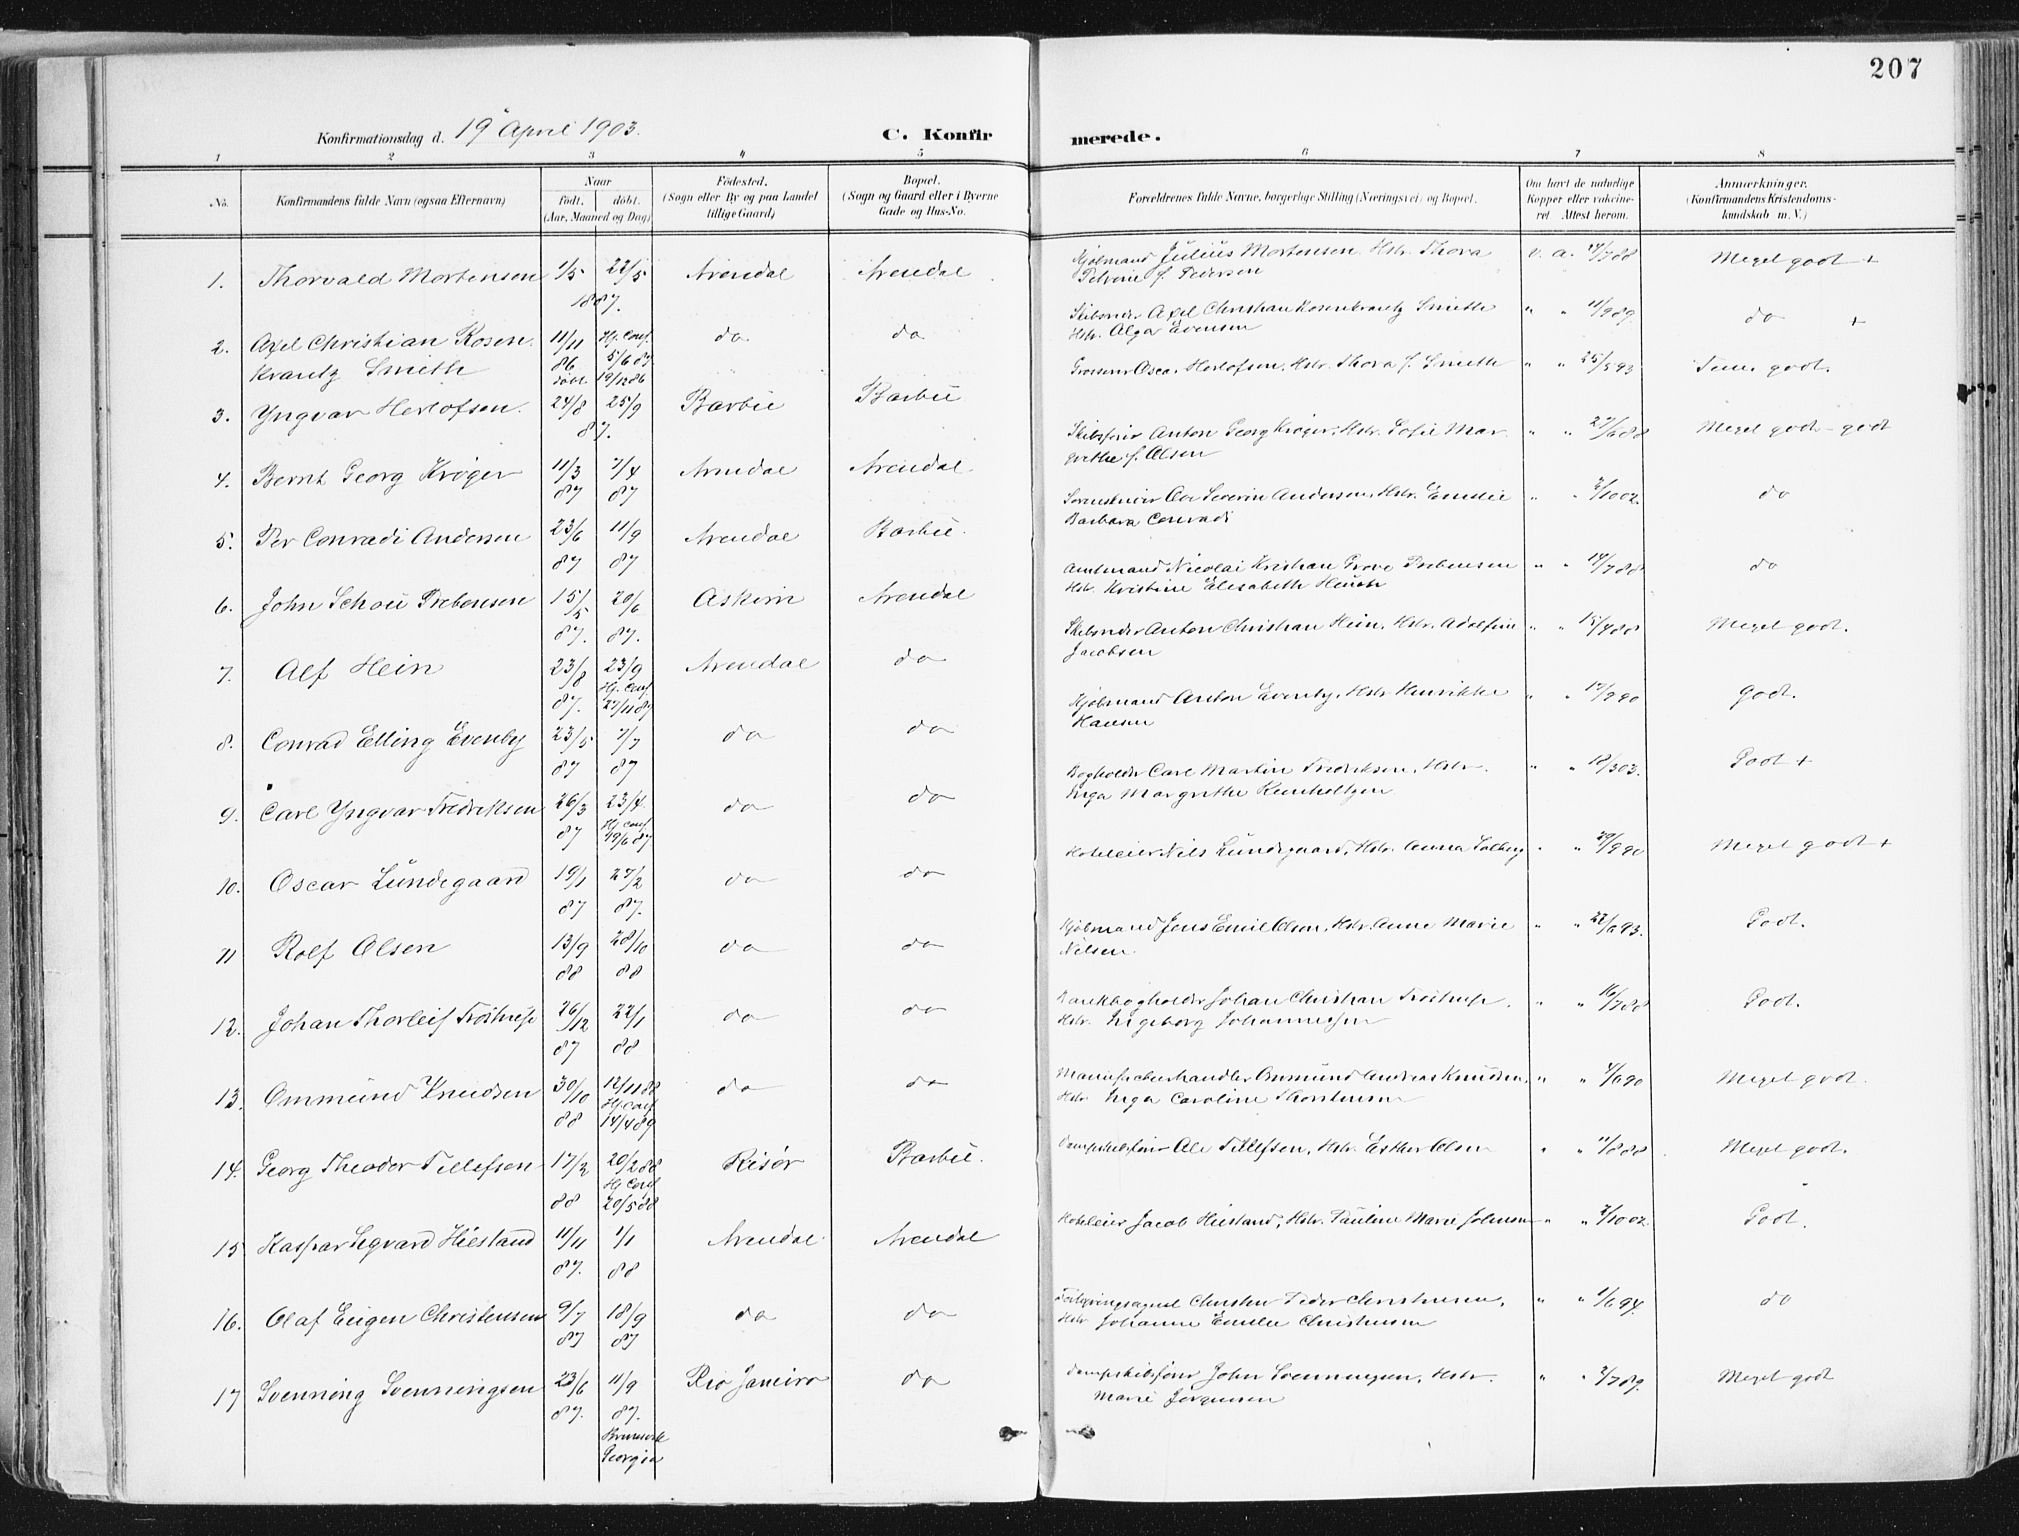 207
Konfirmationsdag d. 19 April 1903.
C. Konfirmerede.
1 2 3 4 5 6 7 8
No. Konfirmandens fulde Navn (ogsaa Efternavn) Naar født. døbt. (Aar, Maaned og Dag) Fødested. (Sogn eller By og paa Landet tillige Gaard) Bopæl. (Sogn og Gaard eller i Byerne Gade og Hus-No. Forældrenes fulde Navne, borgerlige Stilling (Næringsvei) og Bopæl. Om havt de naturlige Kopper eller vakcineret. Attest herom. Anmærkninger. (Konfirmandens Kristendomskundskab m. V.)
1. Thorvald Mortensen 1/5 22/5 1887. Arendal Arendal Kjøbmand Julius Mortensen, Hstr. Thora Petrine f. Pedersen v. a. 14/7 88 Meget godt +
2. Axel Christian Rosenkrantz Smith 11/11 86 døbt 19/12 86 Hj. Conf. 5/6 87 do do Skibsreder Axel Christian Rosenkrantz Smith Hstr. Olga Evensen " " 11/9 89. do +
3. Yngvar Herlofsen. 24/8 25/9 87. Barbu Barbu Grosserer Oscar Herlofsen, Hstr. Thora f. Smith " " 25/5 93 godt.
4. Bernt Georg Krøger 11/3 87 7/4 87 Arendal Arendal Skibsfører Anton Georg Krøger, Hstr. Sofie Margrethe f. Olsen " " 27/6 88 Meget godt - godt
5. Per Conradi Andersen 23/6 87 11/9 87 Arendal Barbu. Severin Andersen, Hstr. Emilie Barbara Conradi " " 2/10 02. do
6. John Schou Prebensen 15/5 87. 20/6 87. Askim Arendal Amtmand Nicolai Kristian Grove Prebensen Hstr. Kristine Elisabeth Heuch " " 14/7 88 do
7. Alf Hein 23/8 87. 23/9 Hj. Conf. 27/11 87 Arendal do Skibsreder Anton Christian Hein, Hstr. Adolfine Jacobsen " " 15/4 88 Meget godt.
8. Conrad Elling Evenby 23/5 87 7/7 87 do do Kjøbmand Anton Evenby, Hstr. Henrikke Hansen " " Godt.
9. Carl Yngvar Fredriksen 26/3 87 23/4. Hj. Conf. 19/6 87 do do Bogholder Carl Martin Fredriksen, Hstr. Inga Margrethe Reinholtzen " " 18/3 03. Godt +
10. Oscar Lundegaard 19/1 87 27/2 87. do do Hoteleier Nils Lundegaard, Hstr. Anna Solberg " " 29/9 90 Meget godt +
11 Rolf Olsen 13/9 88 28/10 88 do do Kjøbmand Jens Emil Olsen, Hstr. Anne Marie Nilsen. " " 22/6 93. Godt.
12. Johan Thorleif Trøstrup 26/12 87 22/1 88 do do Bankbogholder Johan Christian Trøstrup, Hstr. Ingeborg Johannesen " " 16/7 88 Godt.
13. Ommund Knudsen 30/10 88 12/11 88 Hj. Conf. 14/4 89 do do Manufacturhandler Ommund Andreas Knudsen, Hstr. Inga Caroline Thorstensen " " 7/6 90 Meget godt.
14. Georg Theodor Tellefsen 17/2 88 20/2 88 Hj. Conf. 20/5 88 Risør Barbu. Dampskibsfører Ole Tellefsen, Hstr. Esther Olsen " " 11/8 88. Meget godt.
15 Kaspar Sigvard Hiestand 11/11 87. 1/1 88 Arendal Arendal Hoteleier Jacob Hiestand, Hstr. Pauline Marie Johnsen " " 2/10 02. Godt.
16. Olaf Eugen Christensen 9/7 87 18/9 87 do do Christen Peder Christensen, Hstr. Johanne Emilie Christensen " " 1/6 94. do
17 Svenning Svenningsen 23/6 87. 11/9 87. Brunswick Georgia Rio Janeiro do Dampskibsfører John Svenningsen, Hstr. Marie Jørgensen " " 2/7 89. Meget godt